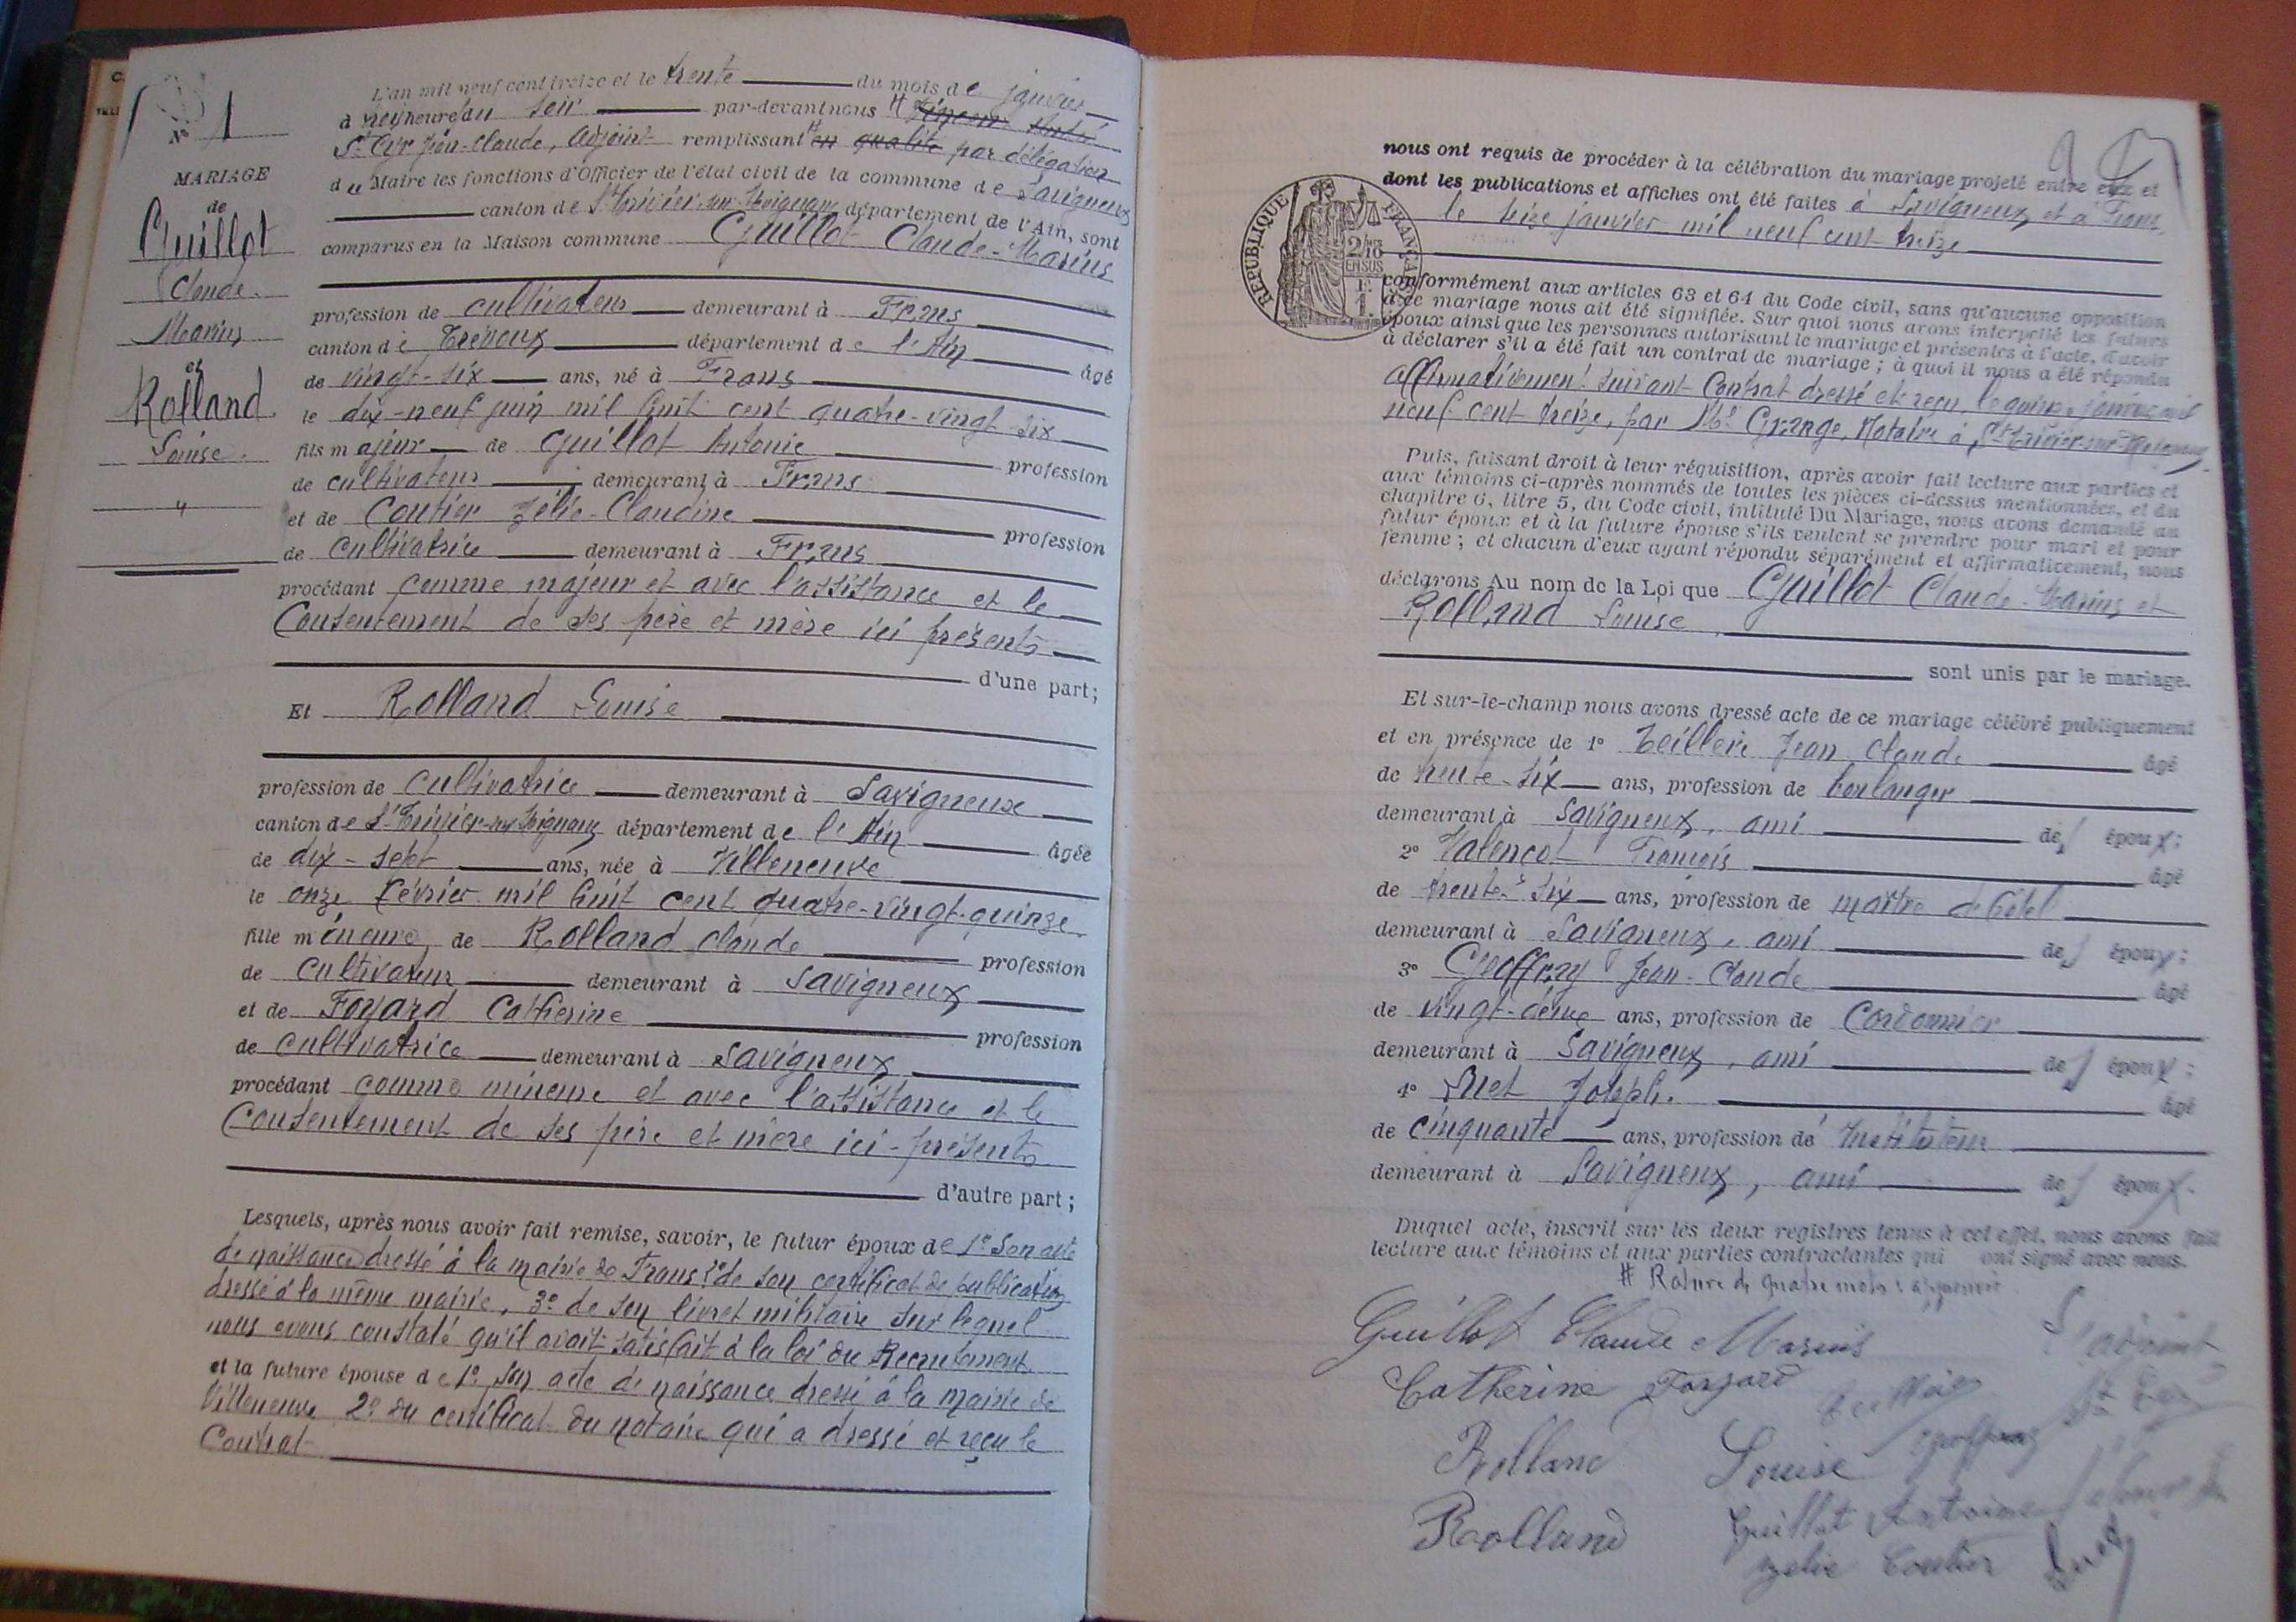 N° 1
MARIAGE
de
Guillot
Claude-
Marius
et
Rolland
Louise.
"
L'an mil neuf cent treize et le trente du mois de janvier
à neuf heures du soir par-devant nous #
St Cyr Jean-Claude, adjoint remplissant # en qualité par délégation
du Maire les fonctions d'Officier de l'état civil de la commune de Savigneux
canton de St Trivier-sur-Moignans département de l'Ain, sont
comparus en la Maison commune Guillot Claude-Marius
profession de cultivateur demeurant à Frans
canton de Trévoux département de l'Ain âgé
de vingt-six ans, né à Frans
le dix-neuf juin mil huit cent quatre-vingt-six
fils majeur de Guillot Antoine profession
de cultivateur demeurant à Frans
et de Coutier Zélie-Claudine profession
de cultivatrice demeurant à Frans
procédant comme majeur et avec l'assistance et le
Consentement de ses père et mère ici présents
d'une part;
Et Rolland Louise
profession de cultivatrice demeurant à Savigneux
canton de St Trivier-sur-Moignans département de l'Ain âgée
de dix-sept ans, née à Villeneuve
le onze février mil huit cent quatre-vingt-quinze
fille mineure de Rolland Claude profession
de cultivateur demeurant à Savigneux
et de Foyard Catherine profession
de cultivatrice demeurant à Savigneux
procédant comme mineure et avec l'assistance et le
Consentement de ses père et mère ici-présents
d'autre part;
Lesquels, après nous avoir fait remise, savoir, le futur époux de 1° Son acte
de naissance dressé à la mairie de Frans 2° de son certificat de publication
dressé à la même mairie, 3° de son livret militaire sur lequel
nous avons constaté qu'il avait satisfait à la loi du Recrutement
et la future épouse de 1° Son acte de naissance dressé à la mairie de
Villeneuve 2° du certificat du notaire qui a dressé et reçu le
Contrat
nous ont requis de procéder à la célébration du mariage projeté entre eux et
dont les publications et affiches ont été faites à Savigneux et à Frans
le seize janvier mil neuf cent treize
RÉPUBLIQUE FRANÇAISE
2/10
EN SUS
1 F.
conformément aux articles 63 et 64 du Code civil, sans qu'aucune opposition
à ce mariage nous ait été signifiée. Sur quoi nous avons interpellé les futurs
époux ainsi que les personnes autorisant le mariage et présentes à l'acte, d'avoir
à déclarer s'il a été fait un contrat de mariage; à quoi il nous a été répondu
affirmativement suivant Contrat dressé et reçu le quinze janvier mil
neuf cent treize, par Me Grange, Notaire à St Trivier-sur-Moignans
Puis, faisant droit à leur réquisition, après avoir fait lecture aux parties et
aux témoins ci-après nommés de toutes les pièces ci-dessus mentionnées, et du
chapitre 6, titre 5, du Code civil, intitulé Du Mariage, nous avons demandé au
futur époux et à la future épouse s'ils veulent se prendre pour mari et pour
femme; et chacun d'eux ayant répondu séparément et affirmativement, nous
déclarons Au nom de la Loi que Guillot Claude-Marius et
Rolland Louise
sont unis par le mariage.
Et sur-le-champ nous avons dressé acte de ce mariage célébré publiquement
et en présence de 1° Teillère Jean Claude âgé
de trente-six ans, profession de boulanger
demeurant à Savigneux, ami des époux;
2° Valençot François âgé
de trente-six ans, profession de maître d'hôtel
demeurant à Savigneux, ami des époux;
3° Geoffray Jean-Claude âgé
de vingt-deux ans, profession de Cordonnier
demeurant à Savigneux, ami des époux;
4° Joseph. âgé
de cinquante ans, profession de Instituteur
demeurant à Savigneux, ami des époux.
Duquel acte, inscrit sur les deux registres tenus à cet effet, nous avons fait
lecture aux témoins et aux parties contractantes qui ont signé avec nous.
# Rature de quatre mots approuvé
Guillot Claude Marius
L'adjoint
Catherine Foyard
St Cyr
Geoffray
Rolland Louise
Rolland
Guillot Antoine
Zelie Coutier